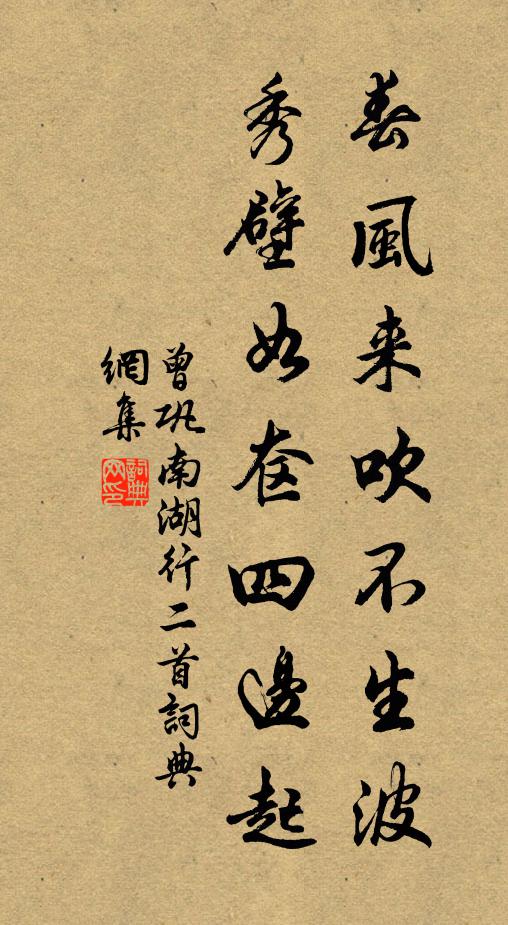 春風来吹不生波
秀壁如奁四邊起
曾巩南湖行二首詞典
網集
詞典網印